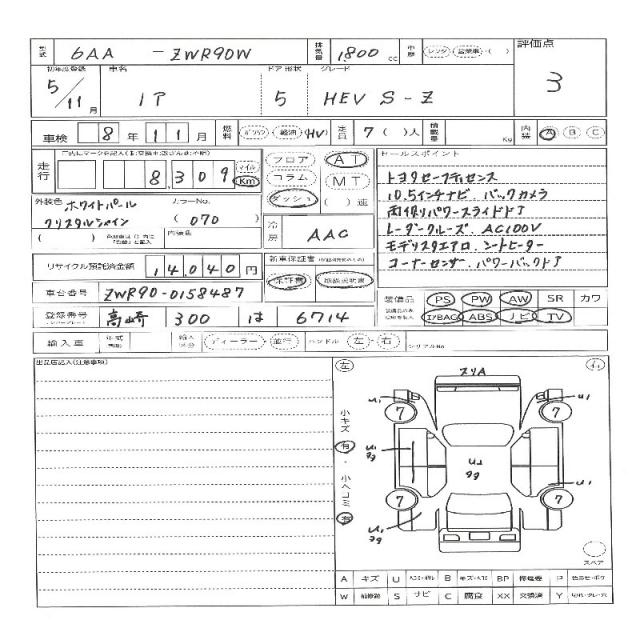 型式 6AA - ZWR90W 排気量 1,800 cc 車歴 レンタ 営業車 ( ) 評価点
初年度登録 車名 ドア形状 グレード
5/11月 IP 5 HEV S-Z 3
車検 8年11月 燃料 ガソリン 軽油 (HV) 定員 7( )人 積載量 Kg 内装 A B C
走行 8,309 マイル Km フロア AT セールスポイント
コラム MT トヨタセーフティセンス
ダッシュ ( )速 10.5インチナビ. バックカメラ
外装色 ホワイトパール カラーNo. 両側パワースライドドア
クリスタルシャイン (070) 冷房 AAC レーダークルーズ. AC100V
( ) 内装色 モデリスタエアロ. シートヒーター
リサイクル預託済金額 14,040円 新車保証書 コーナーセンサー. パワーバックドア
保証書 取扱説明書
車台番号 ZWR90-0158487 装備品 PS PW AW SR カワ
登録番号 高崎 300 は 6714 エアBAG ABS ナビ TV
輸入車 年式 輸入区分 ディーラー・並行 ハンドル 左・右 シリアルNo
出品店記入(注意事項)
左
小キズ 有・小ヘコミ 有
7 7
7 7
スペア
A キズ U B キズ・ヘコミ BP 補修要 P 色あせ・ボケ
W 補修跡 S サビ C 腐食 XX 交換済 Y 切れ・グレー・穴